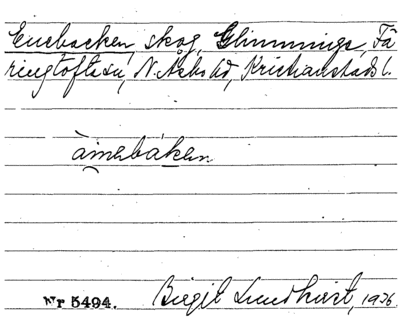 Enebacken, skog, Glimminge, Fä
ringtoftasn, N. Åsbo hd, Kristianstads l.
àinebáken
Nr 5494. Birgit Lundkvist, 1926